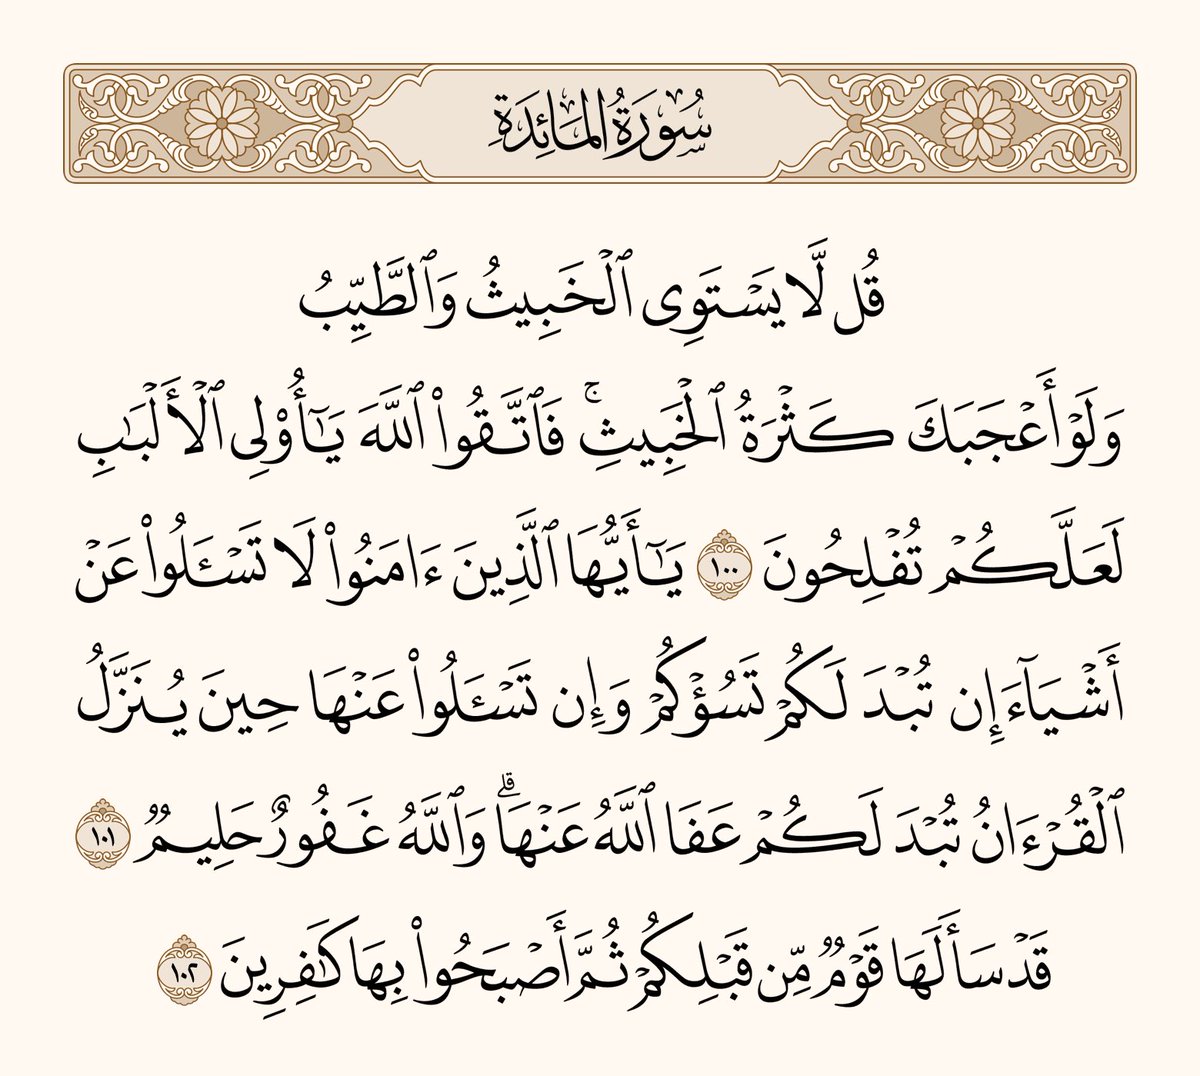 سُورَةُ المَائِدَةِ
قُل لَّا يَسْتَوِى ٱلْخَبِيثُ وَٱلطَّيِّبُ
وَلَوْ أَعْجَبَكَ كَثْرَةُ ٱلْخَبِيثِ ۚ فَٱتَّقُوا۟ ٱللَّهَ يَـٰٓأُو۟لِى ٱلْأَلْبَـٰبِ
لَعَلَّكُمْ تُفْلِحُونَ ١٠٠ يَـٰٓأَيُّهَا ٱلَّذِينَ ءَامَنُوا۟ لَا تَسْـَٔلُوا۟ عَنْ
أَشْيَآءَ إِن تُبْدَ لَكُمْ تَسُؤْكُمْ وَإِن تَسْـَٔلُوا۟ عَنْهَا حِينَ يُنَزَّلُ
ٱلْقُرْءَانُ تُبْدَ لَكُمْ عَفَا ٱللَّهُ عَنْهَا ۗ وَٱللَّهُ غَفُورٌ حَلِيمٌ ١٠١
قَدْ سَأَلَهَا قَوْمٌ مِّن قَبْلِكُمْ ثُمَّ أَصْبَحُوا۟ بِهَا كَـٰفِرِينَ ١٠٢